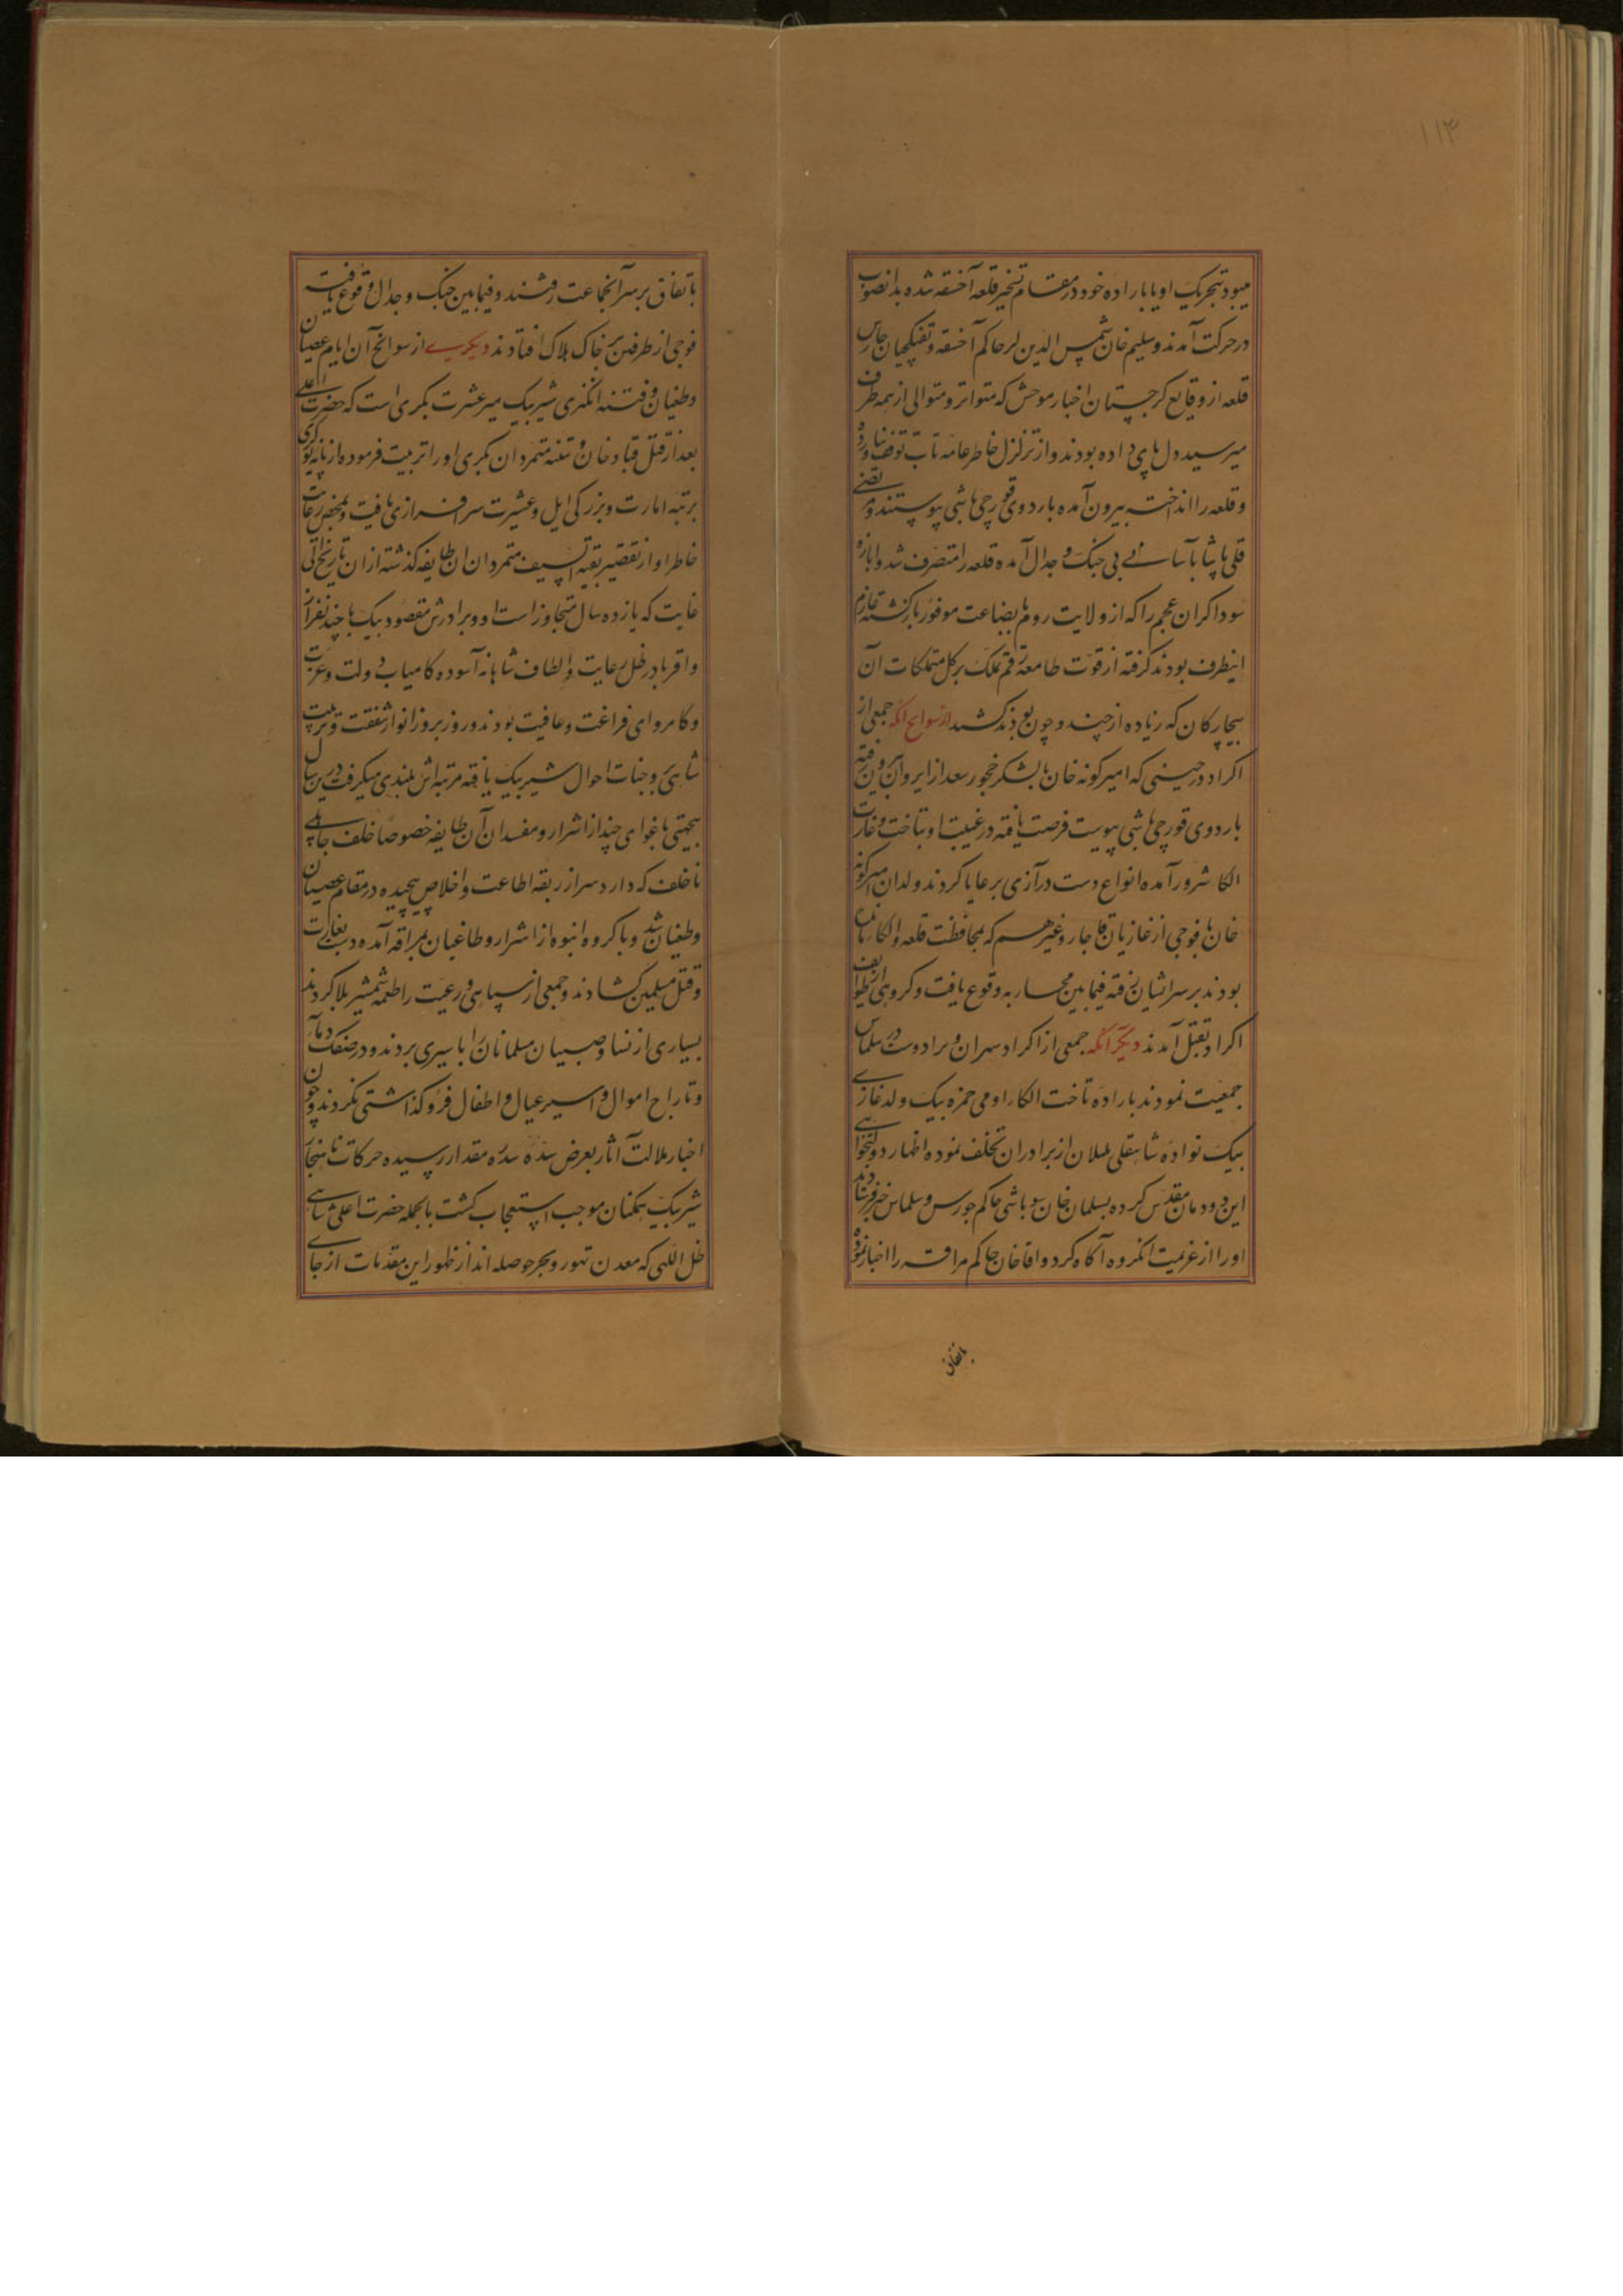 ۱۱۳
میبود بتحریک او یا باراده خود در مقام تسخیر قلعه آخسقه شده بدانصوب
در حرکت آمدند و سلیم خان شمس الدین لو حاکم آخسقه و تفنکچیان حارس
قلعه از وقایع کرجستان اخبار موحش که متواتر و متوالی از همه طرف
میرسید دل بای داده بودند و از تزلزل خاطر عامه تاب توقف نیاورده
و قلعه را انداخته بیرون آمده باردوی قورچی باشی پیوستند و مرتضی
قلی پاشا بآسانی بی جنک و جدال آمده قلعه را متصرف شد و
سوداکران عجم را که از ولایت روم با بضاعت موفور بازکشته عازم
اینطرف بودند کرفته از قوت طامعه رقم تملک بر کل متملکات آن
بیچارکان که زیاده از چند و چون بود کشید از سوانح آنکه جمعی از
اکراد در حینی که امیرکونه خان با لشکر خجور سعد از ایروان بیرون رفته
باردوی قورچی باشی پیوست فرصت یافته در غیبت او بتاخت و غارت
الکا شرور آمده انواع دست درآزی برعایا کردند ولدان امیرکونه
خان با فوجی از غازیان قاجار و غیرهم که بمحافظت قلعه و الکا مانده
بودند بر سر ایشان رفته فیمابین محاربه وقوع یافت و کروهی از طوایف
اکراد بقتل آمدند دیکر آنکه جمعی از اکراد سهران و برادوست در سلماس
جمعیت نمودند باراده تاخت الکاء اومی حمزه بیک ولد غازی
بیک نواده شاهقلی بلیلان از برادران تخلف نموده اظهار دولتخواهی
این دودمان مقدس کرده بسلمان خان سوباشی حاکم چورس و سلماس خبر فرستادند
او را از عزیمت انکروه آکاه کرد و اقاخان حاکم مراقه را اخبار نموده
باتفاق
باتفاق بر سر آنجماعت رفتند و فیمابین جنک و جدال وقوع یافته
فوجی از طرفین بر خاک هلاک افتادند دیکری از سوانح آن ایام عصیان
و طغیان و فتنه انکیزی شیر بیک میر عشیرت مکری است که حضرت اعلی
بعد از قتل قباد خان و تتمه متمردان مکری او را تربیت فرموده از پایه نوکری
برتبه امارت و بزرکی ایل و عشیرت سرافرازی یافت و بمحض رعایت
خاطر او از تقصیر بقیه السیف متمردان ان طایفه کذشته از ان تاریخ الی
غایت که یازده سال متجاوز است او و برادرش مقصود بیک با چند نفر از
واقربا در ظل رعایت و الطاف شاهانه آسوده کامیاب دولت و عزت
و کامروای فراغت و عافیت بودند و روز بروز انوار شفقت و تربیت
شاهی بر وجنات احوال شیر بیک یافته مرتبه اش بلندی میکرفت درین سال
بیجهتی باغوای چند از اشرار و مفسدان آن طایفه خصوصا خلف جاهلی
ناخلف که دارد سر از ربقه اطاعت و اخلاص پیچیده در مقام عصیان
و طغیان شد و با کروه انبوه از اشرار و طاغیان بمراقه آمده دست بغارت
و قتل مسلمین کشادند و جمعی از سپاهی و رعیت را طعمه شمشیر بلا کردند
بسیاری از نسا و صبیان مسلمانان را باسیری بردند و در سفک دماء
و تاراج اموال و اسیر عیال و اطفال فروکذاشتی نکردند و چون
اخبار ملالت آثار بعرض سده سدره مقدار رسیده حرکات ناهنجار
شیر بیک همکنان موجب استعجاب کشت بالجمله حضرت اعلی شاهی
ظل اللهی که معدن تهور و بحر حوصله اند از ظهور این مقدمات از جای